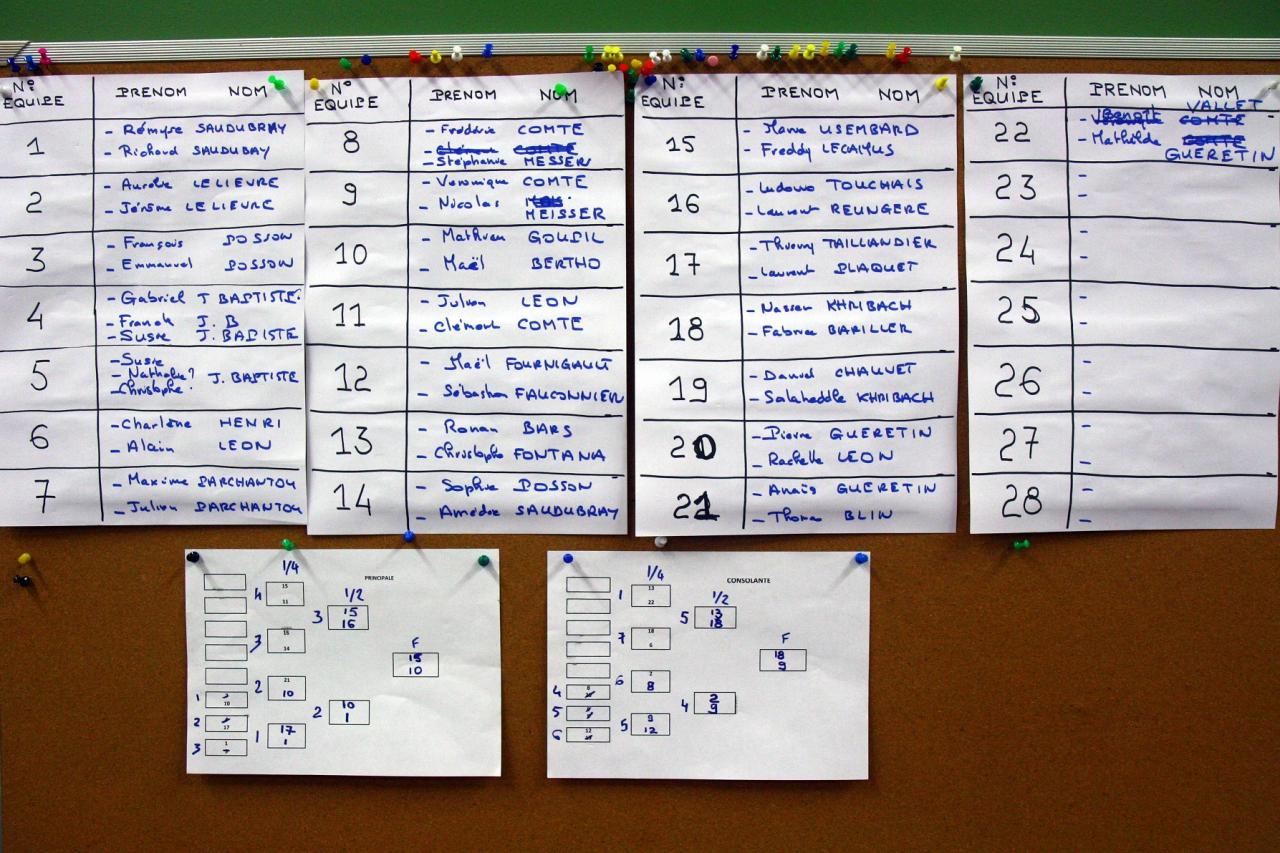 N° EQUIPE PRENOM NOM
1 - Rémyse SAUDUBRAY
- Richard SAUDUBAY
2 - Aurélie LELIEVRE
- Jérôme LELIEVRE
3 - François POSSON
- Emmanuel POSSON
4 - Gabriel J BAPTISTE
- Franck J. B
- Susie J. BAPISTE
5 - Susie
- Nathalie? J. BAPTISTE
- Christophe?
6 - Charlène HENRI
- Alain LEON
7 - Maxime PARCHANTOU
- Julien PARCHANTOU
N° EQUIPE PRENOM NOM
8 - Frédéric COMTE
- Clément COMTE
- Stéphanie MESSER
9 - Veronique COMTE
- Nicolas
MEISSER
10 - Mathieu GOUPIL
- Maël BERTHO
11 - Julien LEON
- Clément COMTE
12 - Maël FOURNIGAULT
- Sébastien FAUCONNIER
13 - Ronan BARS
- Christophe FONTANA
14 - Sophie POSSON
- Amédée SAUDUBRAY
N° EQUIPE PRENOM NOM
15 - USEMBARD
- Freddy LECAMUS
16 - Ludovic TOUCHAIS
- Laurent REUNGERE
17 - Thierry TAILLANDIER
- Laurent PLAQUET
18 - Nasser KHRIBACH
- Fabrice BARILLER
19 - Daniel CHAUVET
- Salaheddle KHRIBACH
20 - Pierre GUERETIN
- Rachelle LEON
21 - Anaïs GUERETIN
- Thomas BLIN
N° EQUIPE PRENOM NOM
VALLET
22 - COMTE
- Mathilde COMTE
GUERETIN
23 -
-
24 -
-
25 -
-
26 -
-
27 -
-
28 -
-
PRINCIPALE
1/4
1/2
F
4 15 11
3 15 16
3 16 14
15 10
2 21 10
1 10
2 10 1
2 17
1 17 1
3 1
CONSOLANTE
1/4
1/2
F
1 13 22
5 13 18
7 18 6
18 9
6 2 8
4 8
4 2 9
5
5 9 12
6 12